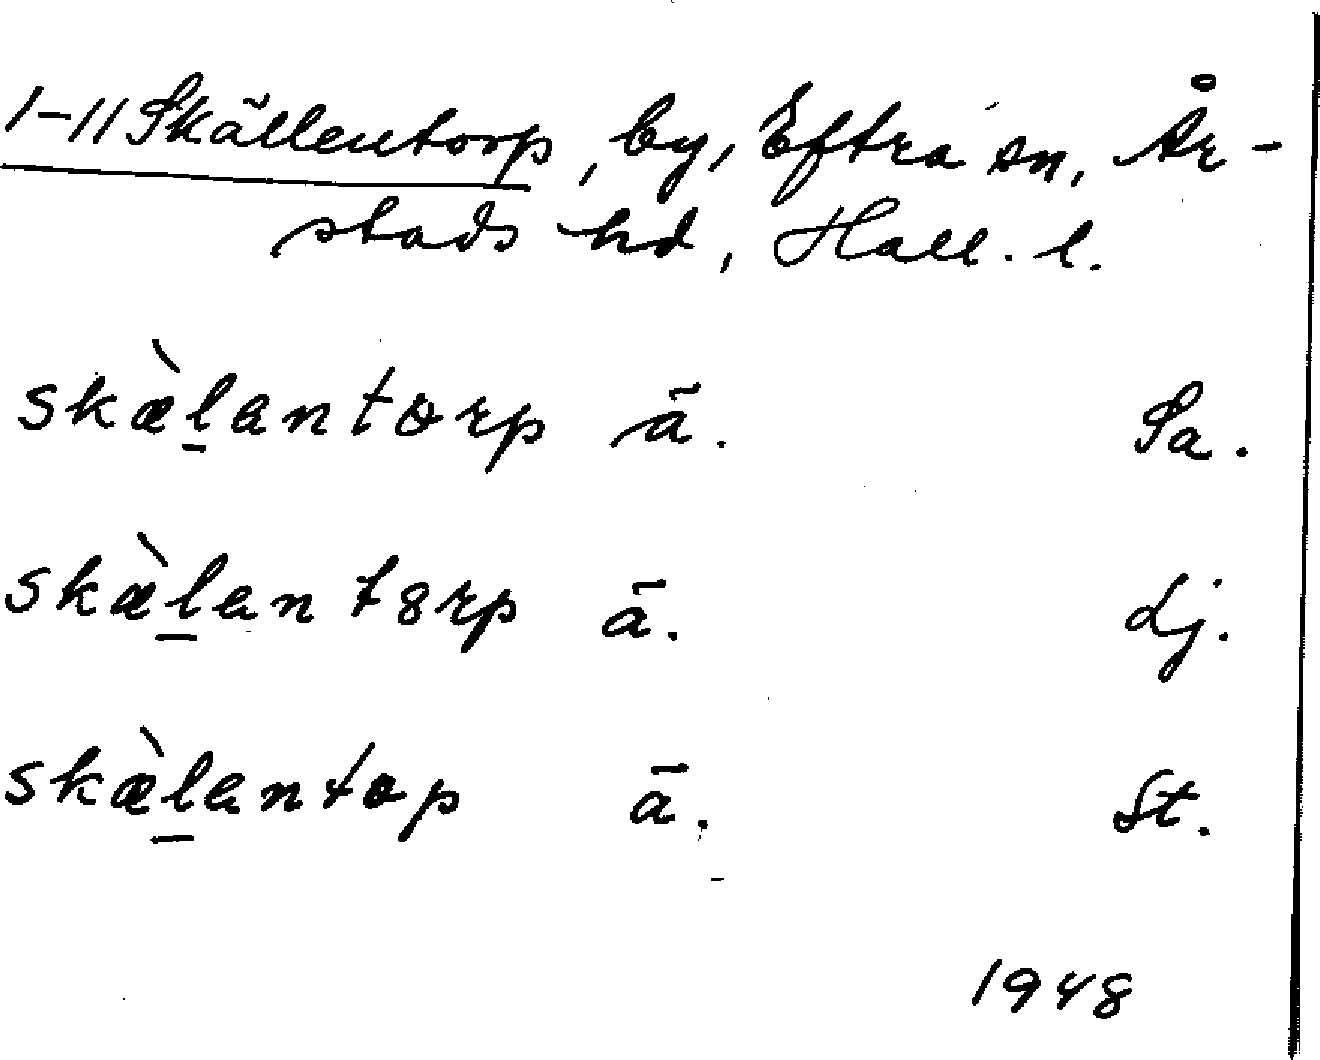 1-11 Skällentorp, by, Eftra sn, År-
stads hd, Hall. l.
skæ̀l̲antorp ā. Sa.
skæ̀l̲an t8rp ā. Lj.
skæ̀l̲antop ā. St.
1948